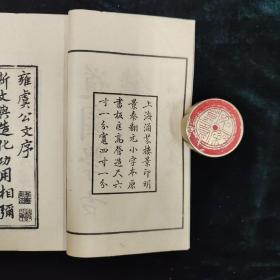 上海涵芬樓景印明
景泰翻元小字本原
書板匡高營造尺六
寸一分寬四寸一分
雍虞公文序
斯文與造化功用相彌